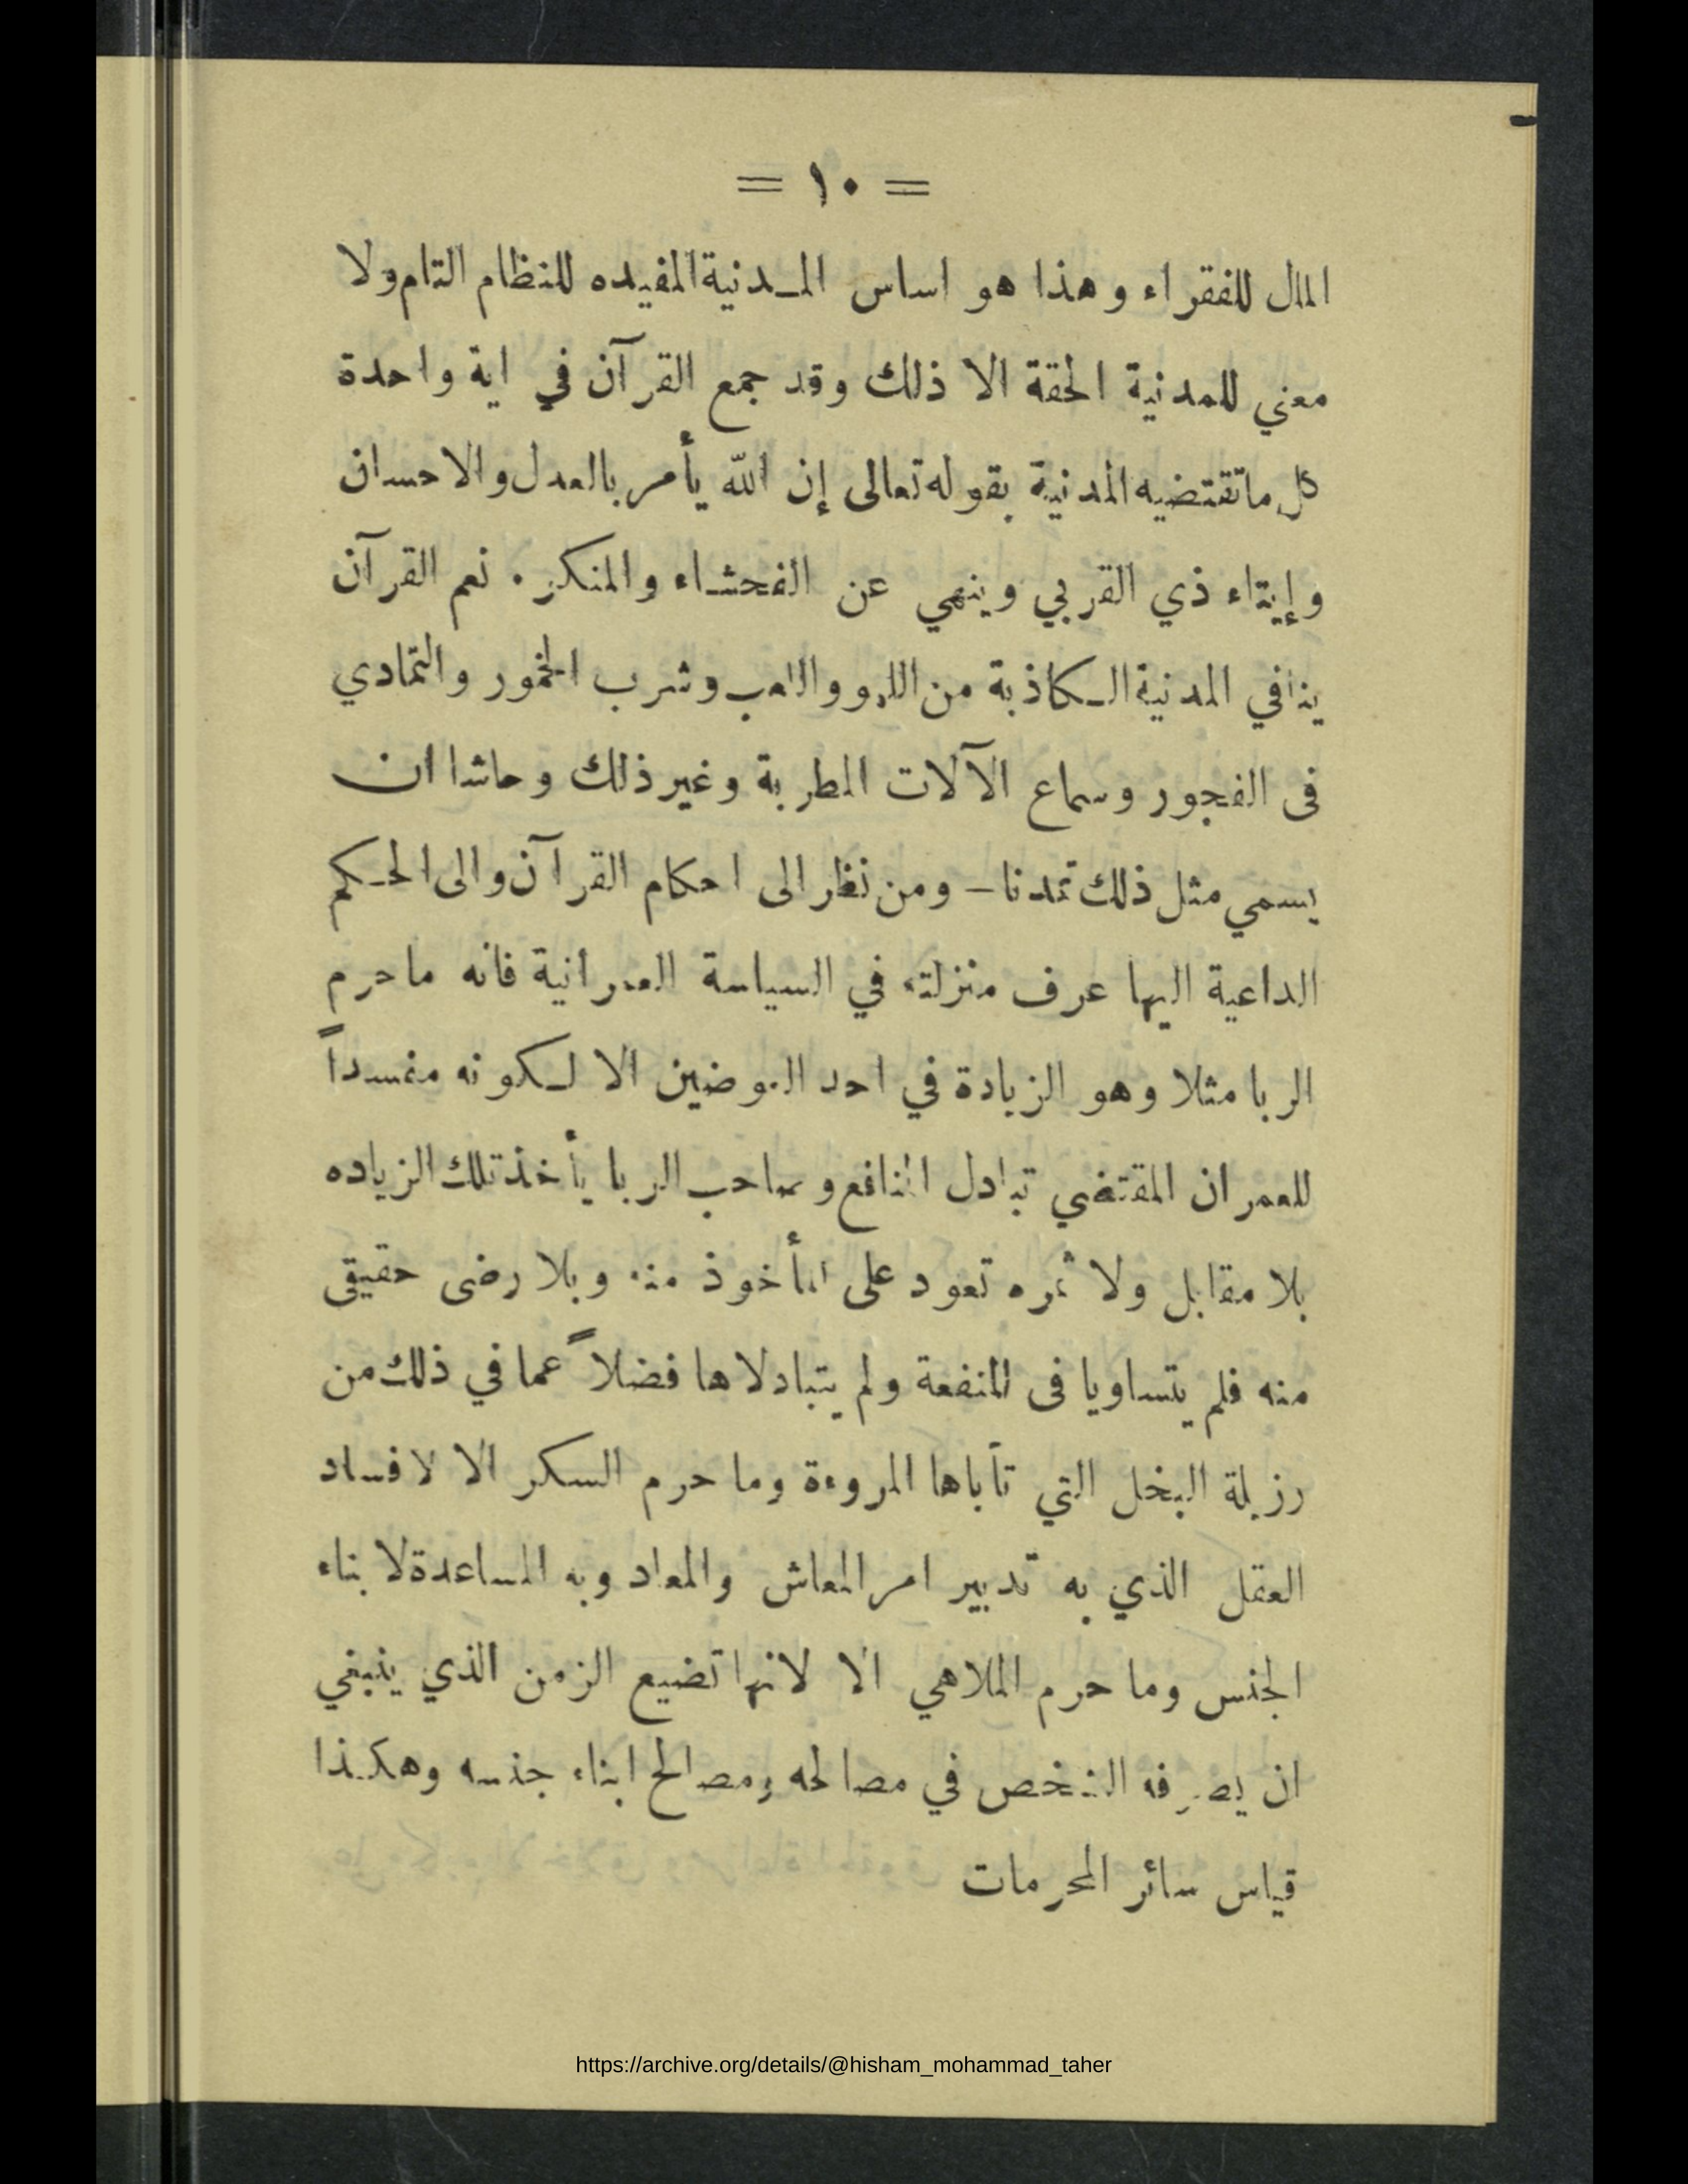 = ١٠ =
المال للفقراء وهذا هو اساس المـدنية المفيده للنظام التام ولا
معني للمدنية الحقة الا ذلك وقد جمع القرآن في اية واحدة
كل ما تقتضيه المدنية بقوله تعالى إن الله يأمر بالعدل والاحسان
وإيتاء ذي القربي وينهي عن الفحشـاء والمنكر . نعم القرآن
ينافي المدنية الـكاذبة من اللهو والامب وشرب الخمور والتمادي
فى الفجور وسماع الآلات المطربة وغير ذلك وحاشا ان
يسمي مثل ذلك تمدنا – ومن نظر الى احكام القرآن والى الحـكم
الداعية اليها عرف منزلته في السياسة العمرانية فانه ما حرم
الربا مثلا وهو الزيادة في احد العوضين الا لـكونه مفسداً
للعمران المقتضي تبادل المنافع وصاحب الربا يأخذ تلك الزياده
بلا مقابل ولا ثمره تعود على المأخوذ منه وبلا رضى حقيقى
منه فلم يتساويا فى المنفعة ولم يتبادلاها فضلاً عما في ذلك من
رزيلة البخل التي تأباها المروءة وما حرم السكر الا لافساد
العقل الذي به تدبير امر المعاش والمعاد وبه المساعدة لابناء
الجنس وما حرم الملاهي الا لانها تضيع الزمن الذي ينبغي
ان يصرفه الشخص في مصالحه ومصالح ابناء جنسه وهكذا
قياس سائر المحرمات
https://archive.org/details/@hisham_mohammad_taher